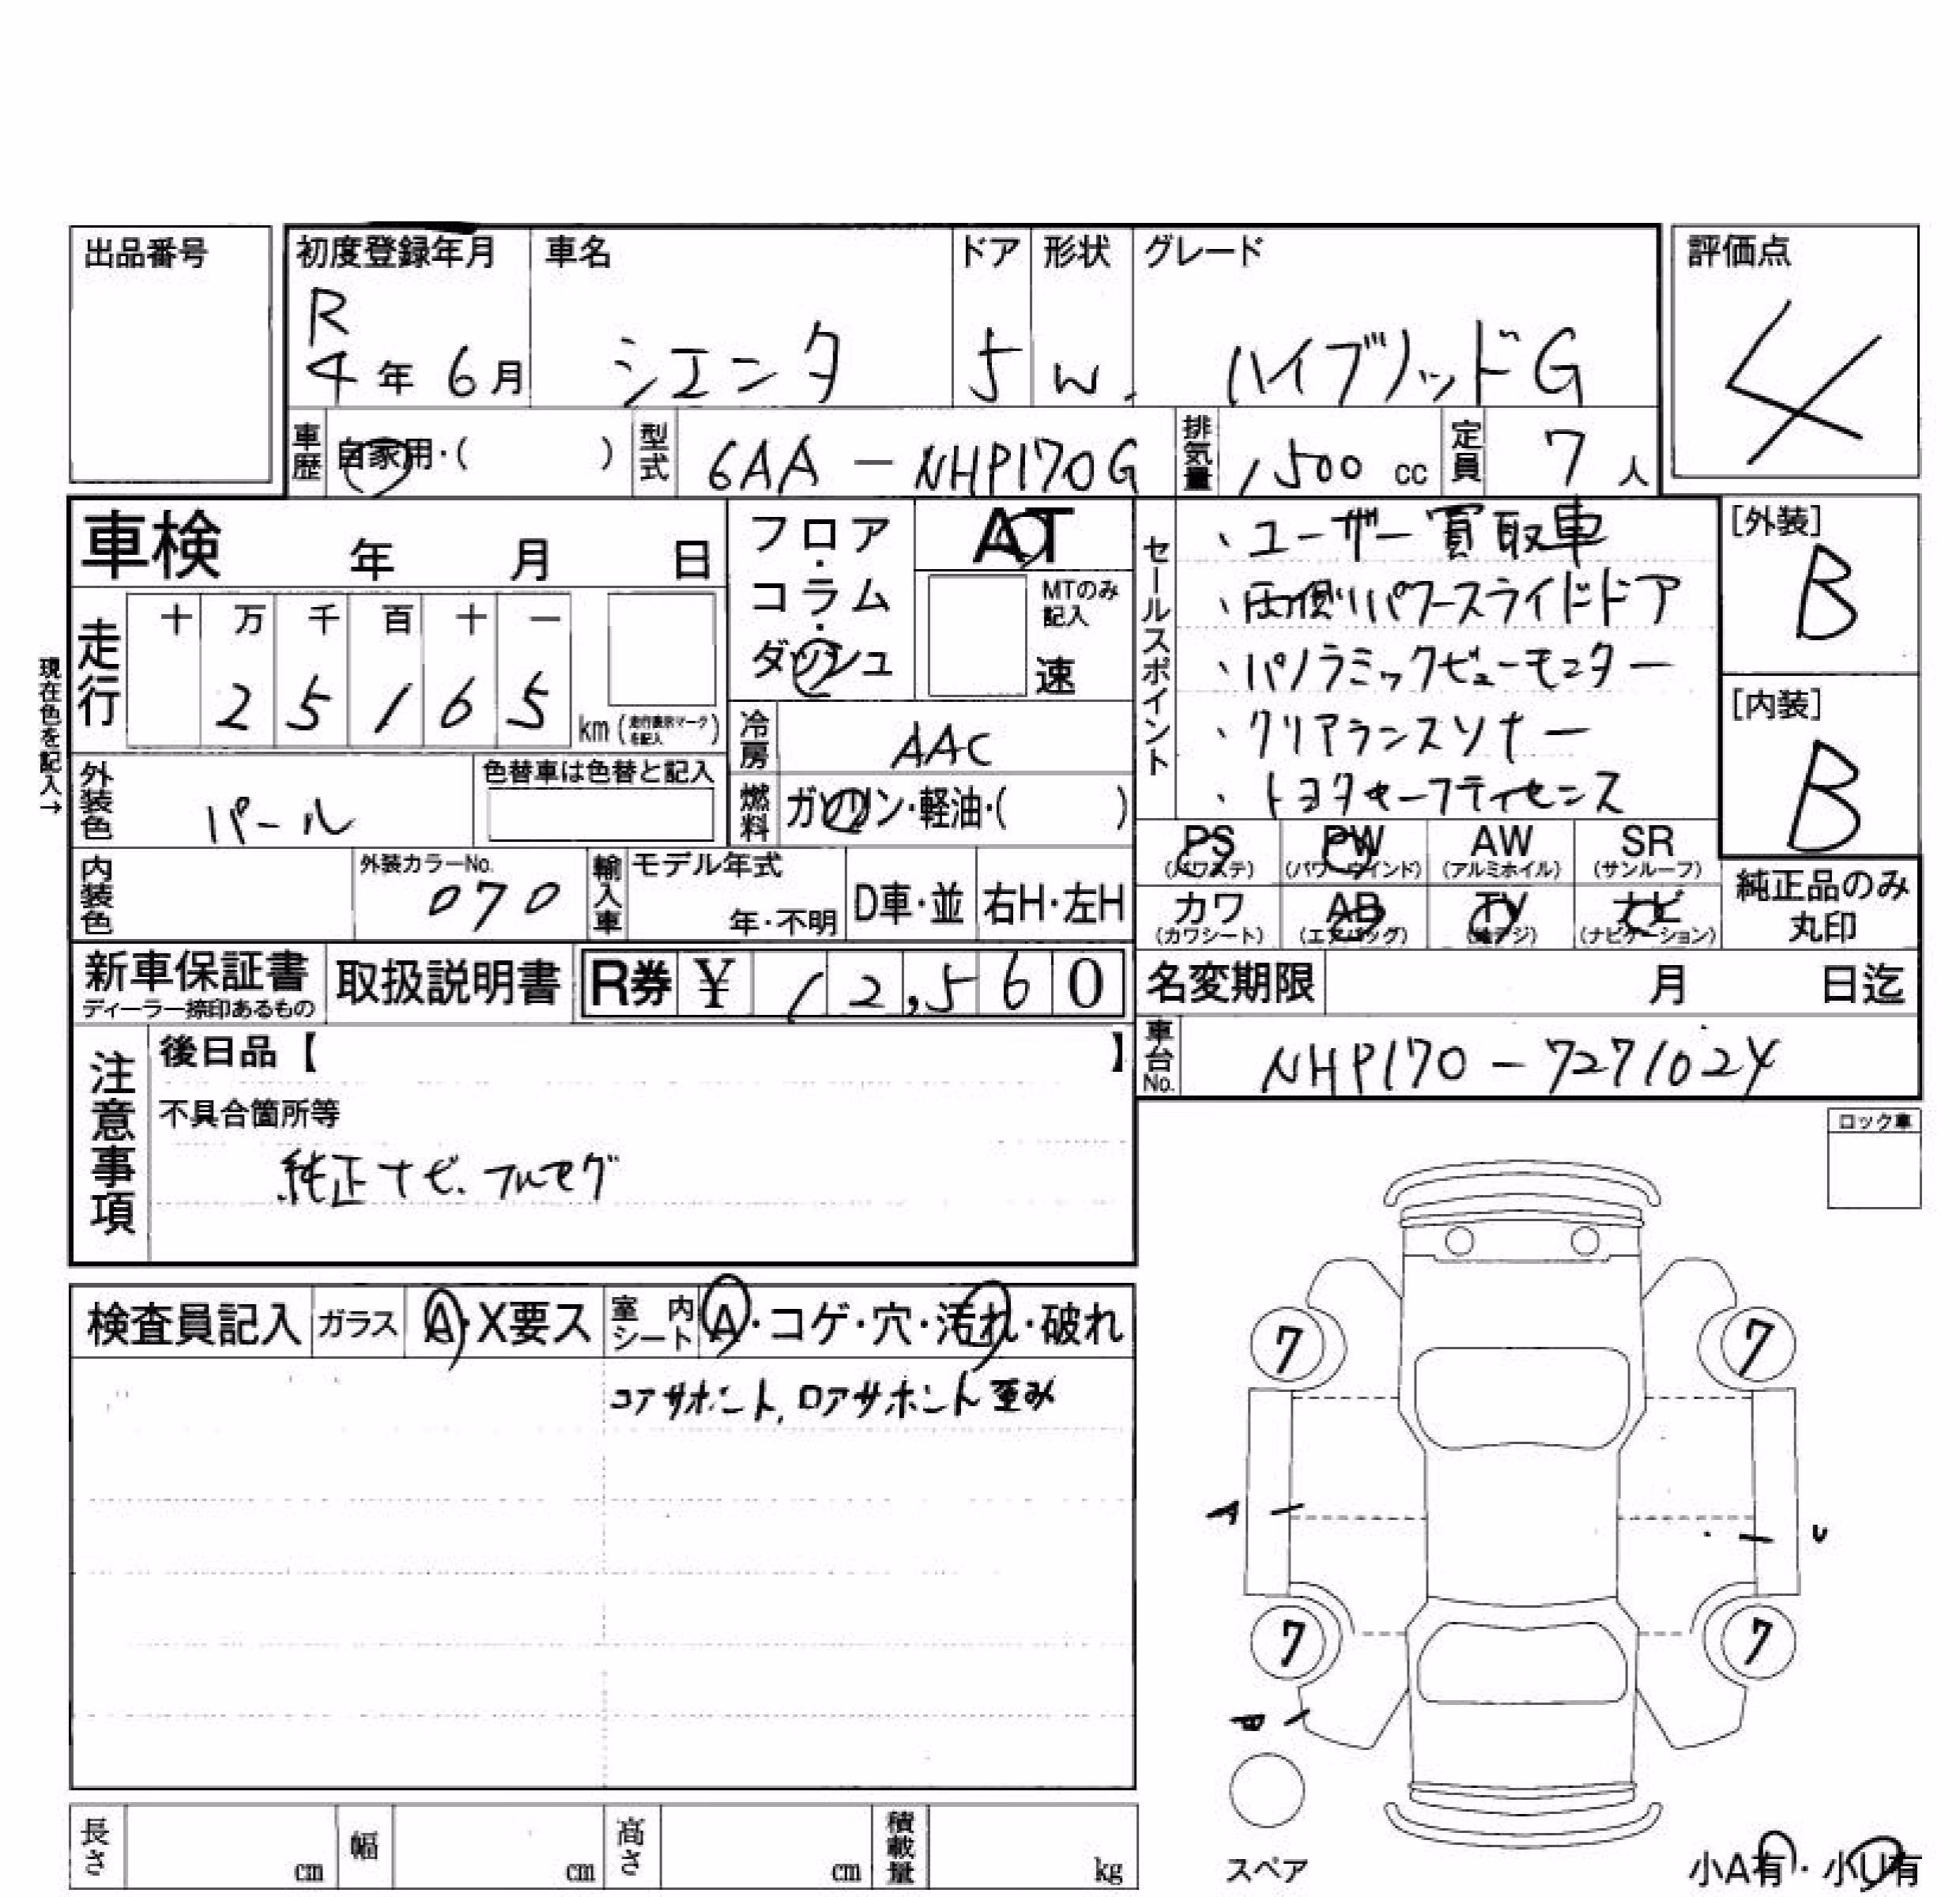 出品番号
初度登録年月 車名 ドア 形状 グレード 評価点
R
4年 6月 シエンタ 5 W. ハイブリッドG 4
車歴 自家用・( ) 型式 6AA-NHP170G 排気量 1500 cc 定員 7人
車検 年 月 日
フロア・コラム・ダッシュ
AT
MTのみ記入
速
セールスポイント
、ユーザー買取車
、両側パワースライドドア
、パノラミックビューモニター
、クリアランスソナー
、トヨタセーフティセンス
[外装]
B
[内装]
B
現在色を記入→
走行 十 万 千 百 十 一
2 5 1 6 5 km (走行表示マークを記入)
冷房 AAC
外装色 パール
色替車は色替と記入
燃料 ガソリン・軽油・( )
PS (パワステ) PW (パワーウインド) AW (アルミホイル) SR (サンルーフ)
カワ (カワシート) AB (エアバッグ) TV (純テレビ) ナビ (ナビゲーション)
純正品のみ丸印
内装色 外装カラーNo. 070
輸入車 モデル年式 年・不明 D車・並 右H・左H
新車保証書
ディーラー捺印あるもの
取扱説明書 R券 ¥ 12,560
名変期限 月 日迄
車台No. NHP170-7271024
注意事項
後日品【 】
不具合箇所等
純正ナビ.フルセグ
ロック車
検査員記入 ガラス A・X要ス 室内シート A・コゲ・穴・汚れ・破れ
コアサポート,ロアサポート歪み
7 7
A U
7 7
スペア
長さ cm 幅 cm 高さ cm 積載量 kg
小A有・小U有